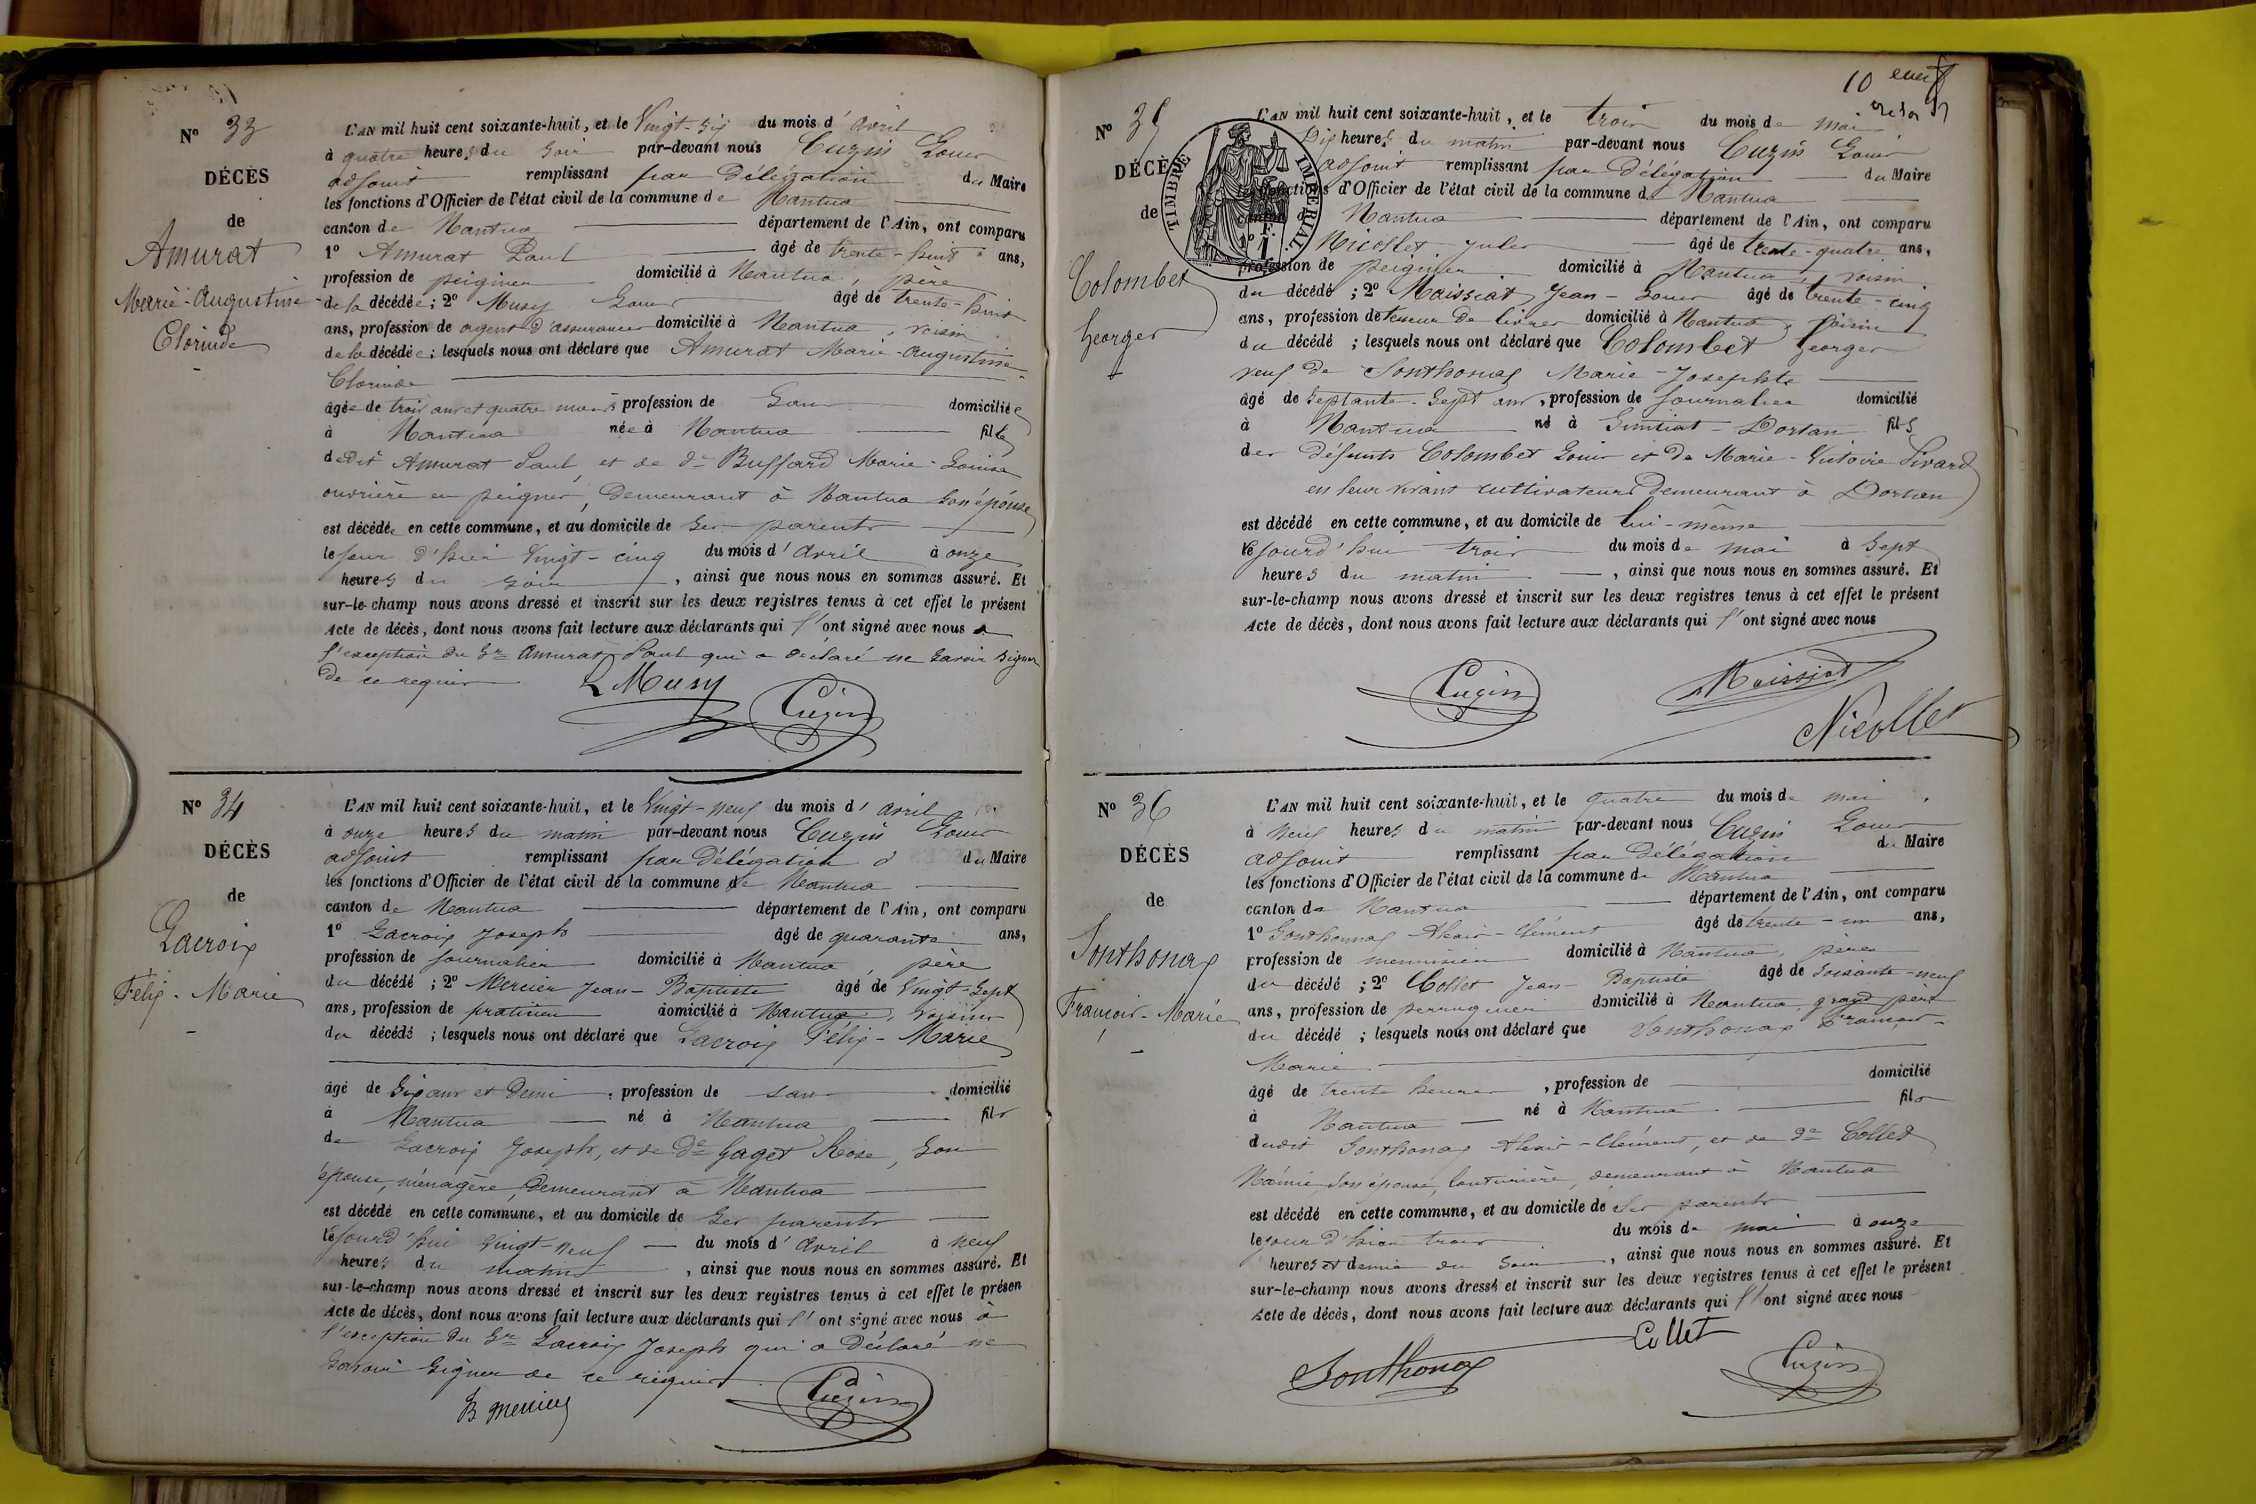 N° 33
DÉCÈS
de
Amurat
Marie-Augustine
Clorinde
L'AN mil huit cent soixante-huit, et le Vingt-six du mois d'avril
à quatre heures du soir par-devant nous Cuzin Louis
adjoint remplissant par Délégation du Maire
les fonctions d'Officier de l'état civil de la commune de Nantua
canton de Nantua département de l'Ain, ont comparu
1° Amurat Paul âgé de trente-huit ans,
profession de peignier domicilié à Nantua, père
de la décédée; 2° Musy Louis âgé de trente-huit
ans, profession de agent d'assurances domicilié à Nantua, voisin
de la décédée; lesquels nous ont déclaré que Amurat Marie-Augustine-
Clorinde
âgée de trois ans et quatre mois profession de Sans domiciliée
à Nantua née à Nantua fille
dudit Amurat Paul et de de Buffard Marie-Louise
ouvrière en peignes, demeurant à Nantua son épouse
est décédée en cette commune, et au domicile de ses parents
le jour d'hier Vingt-cinq du mois d'avril à onze
heures du soir, ainsi que nous nous en sommes assuré. Et
sur-le-champ nous avons dressé et inscrit sur les deux registres tenus à cet effet le présent
Acte de décès, dont nous avons fait lecture aux déclarants qui l'ont signé avec nous à
l'exception du Sr Amurat Paul qui a déclaré ne savoir signer
de ce requis
L Musy Cuzin
N° 34
DÉCÈS
de
Lacroix
Félix-Marie
L'AN mil huit cent soixante-huit, et le Vingt-neuf du mois d'avril
à onze heures du matin par-devant nous Cuzin Louis
adjoint remplissant par Délégation du Maire
les fonctions d'Officier de l'état civil de la commune de Nantua
canton de Nantua département de l'Ain, ont comparu
1° Lacroix Joseph âgé de quarante ans,
profession de journalier domicilié à Nantua, père
du décédé; 2° Mercier Jean-Baptiste âgé de Vingt-sept
ans, profession de praticien domicilié à Nantua, voisin
du décédé; lesquels nous ont déclaré que Lacroix Félix-Marie
âgé de Six ans et demi, profession de sans domicilié
à Nantua né à Nantua fils
de Lacroix Joseph, et de de Gaget Rose, son
épouse, ménagère, demeurant à Nantua
est décédé en cette commune, et au domicile de ses parents
le jourd'hui vingt-neuf du mois d'avril à neuf
heures du matin, ainsi que nous nous en sommes assuré. Et
sur-le-champ nous avons dressé et inscrit sur les deux registres tenus à cet effet le présen
Acte de décès, dont nous avons fait lecture aux déclarants qui l'ont signé avec nous à
l'exception du Sr Lacroix Joseph qui a déclaré ne
savoir signer de ce requis
B Mercier Cuzin
10
N° 35
DÉCÈ
de
TIMBRE IMPÉRIAL
1 F.
Colombet
Georges
L'AN mil huit cent soixante-huit, et le trois du mois de mai
Dix heures du matin par-devant nous Cuzin Louis
adjoint remplissant par Délégation du Maire
les fonctions d'Officier de l'état civil de la commune de Nantua
canton de Nantua département de l'Ain, ont comparu
1° Nicollet Jules âgé de trente-quatre ans,
profession de peignier domicilié à Nantua, voisin
du décédé; 2° Maissiat Jean-Louis âgé de trente-cinq
ans, profession de teneur de livres domicilié à Nantua, voisin
du décédé; lesquels nous ont déclaré que Colombet Georges
veuf de Sonthonax Marie-Josephte
âgé de septante-sept ans, profession de journalier domicilié
à Nantua né à Dortan fils
des défunts Colombet Louis et de Marie-Victoire
en leur vivant cultivateurs demeurant à Dortan
est décédé en cette commune, et au domicile de lui-même
le jourd'hui trois du mois de mai à sept
heures du matin, ainsi que nous nous en sommes assuré. Et
sur-le-champ nous avons dressé et inscrit sur les deux registres tenus à cet effet le présent
Acte de décès, dont nous avons fait lecture aux déclarants qui l'ont signé avec nous
Cuzin Maissiat
Nicollet
N° 36
DÉCÈS
de
Sonthonax
François-Marie
L'AN mil huit cent soixante-huit, et le quatre du mois de mai
à neuf heures du matin par-devant nous Cuzin Louis
adjoint remplissant par Délégation du Maire
les fonctions d'Officier de l'état civil de la commune de Nantua
canton de Nantua département de l'Ain, ont comparu
1° Sonthonnax Alexis-Clément âgé de trente-un ans,
profession de menuisier domicilié à Nantua, père
du décédé; 2° Collet Jean-Baptiste âgé de soixante-neuf
ans, profession de perruquier domicilié à Nantua, grand père
du décédé; lesquels nous ont déclaré que Sonthonax François-
Marie
âgé de trente heures, profession de domicilié
à Nantua né à Nantua fils
dudit Sonthonax Alexis-Clément, et de de Collet
son épouse, couturière, demeurant à Nantua
est décédé en cette commune, et au domicile de ses parents
le jour d'hier trois du mois de mai à onze
heures et demie du soir, ainsi que nous nous en sommes assuré. Et
sur-le-champ nous avons dressé et inscrit sur les deux registres tenus à cet effet le présent
Acte de décès, dont nous avons fait lecture aux déclarants qui l'ont signé avec nous
Collet
Sonthonax Cuzin